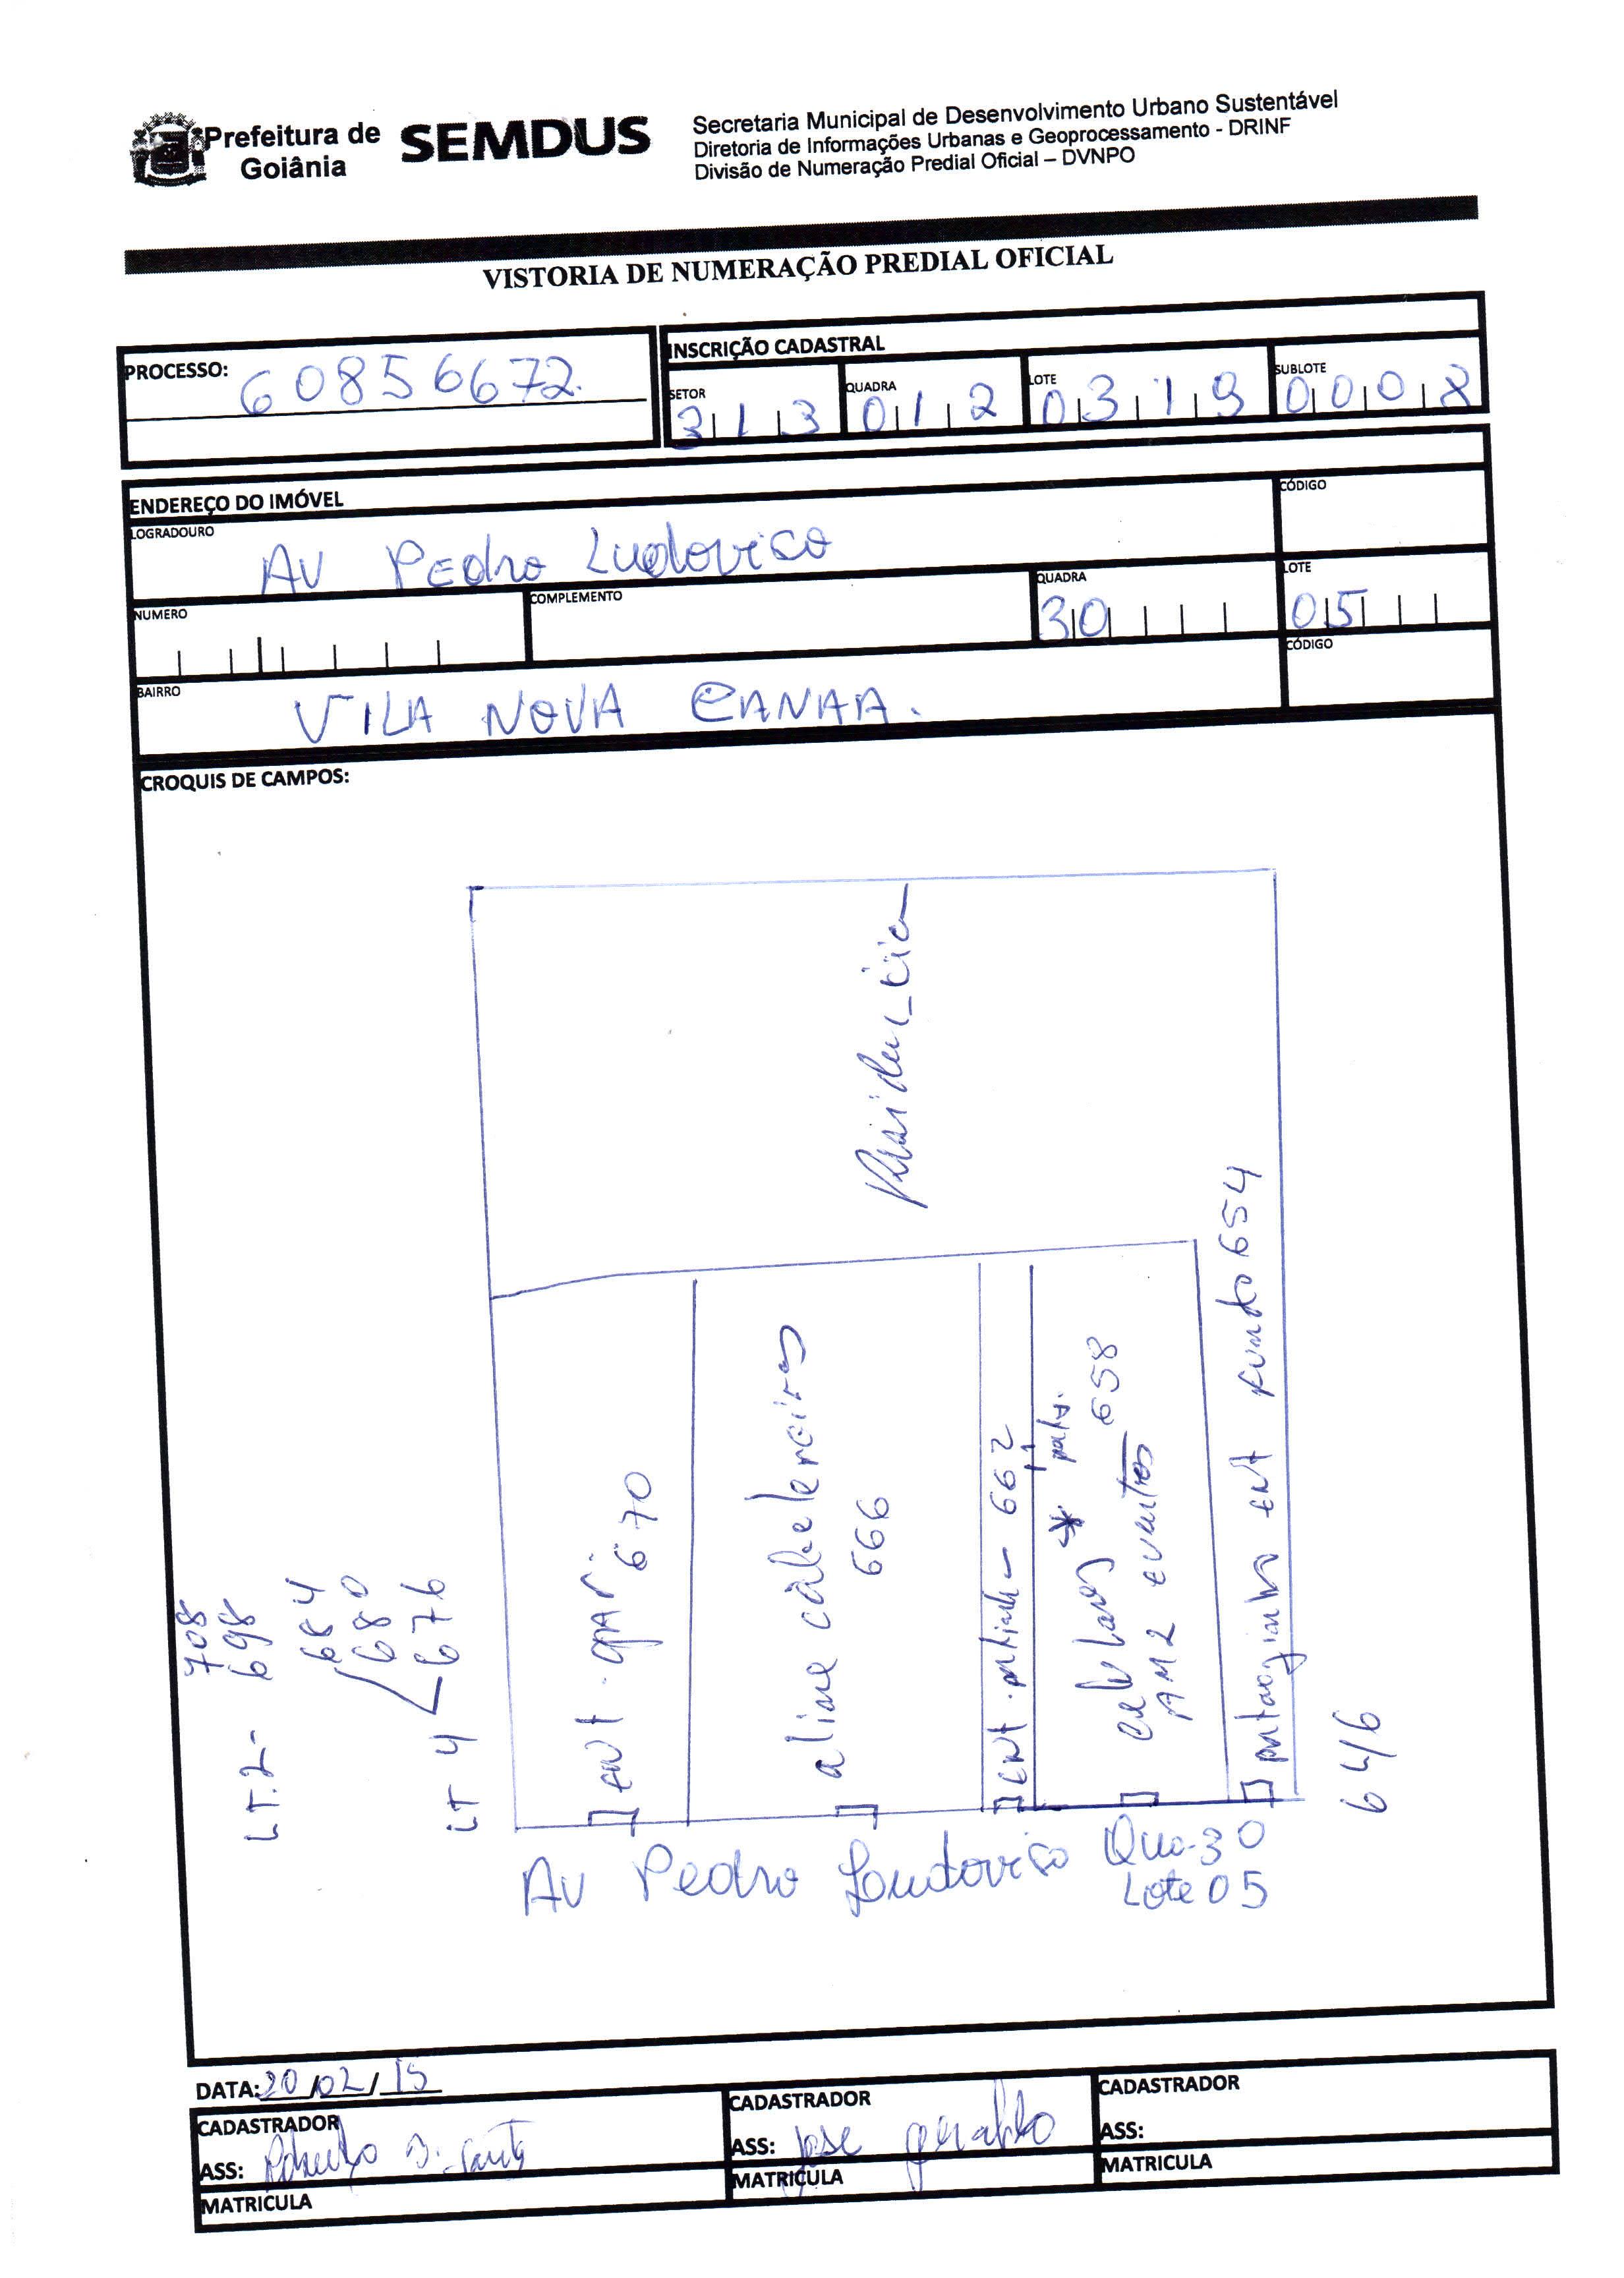 Prefeitura de
Goiânia
SEMDUS
Secretaria Municipal de Desenvolvimento Urbano Sustentável
Diretoria de Informações Urbanas e Geoprocessamento - DRINF
Divisão de Numeração Predial Oficial – DVNPO
VISTORIA DE NUMERAÇÃO PREDIAL OFICIAL
PROCESSO: 60856672.
INSCRIÇÃO CADASTRAL
SETOR 313 QUADRA 012 LOTE 0319 SUBLOTE 0008
ENDEREÇO DO IMÓVEL
LOGRADOURO AV PEdro Ludovico CÓDIGO
NUMERO COMPLEMENTO QUADRA 30 LOTE 05
BAIRRO VILA NOVA CANAA. CÓDIGO
CROQUIS DE CAMPOS:
Residencia
LT.2- 708
698
684
680
LT 4 676
ENT. gar 670
aline cabeleireiros
666
ENT. 662
658
AM2 EVENTOS
portaozinho ENT fundo 654
646
AV Pedro Ludovico Qua-30
Lote 05
DATA: 20/02/15
CADASTRADOR
ASS: Santos
MATRICULA
CADASTRADOR
ASS: Jose geraldo
MATRICULA
CADASTRADOR
ASS:
MATRICULA